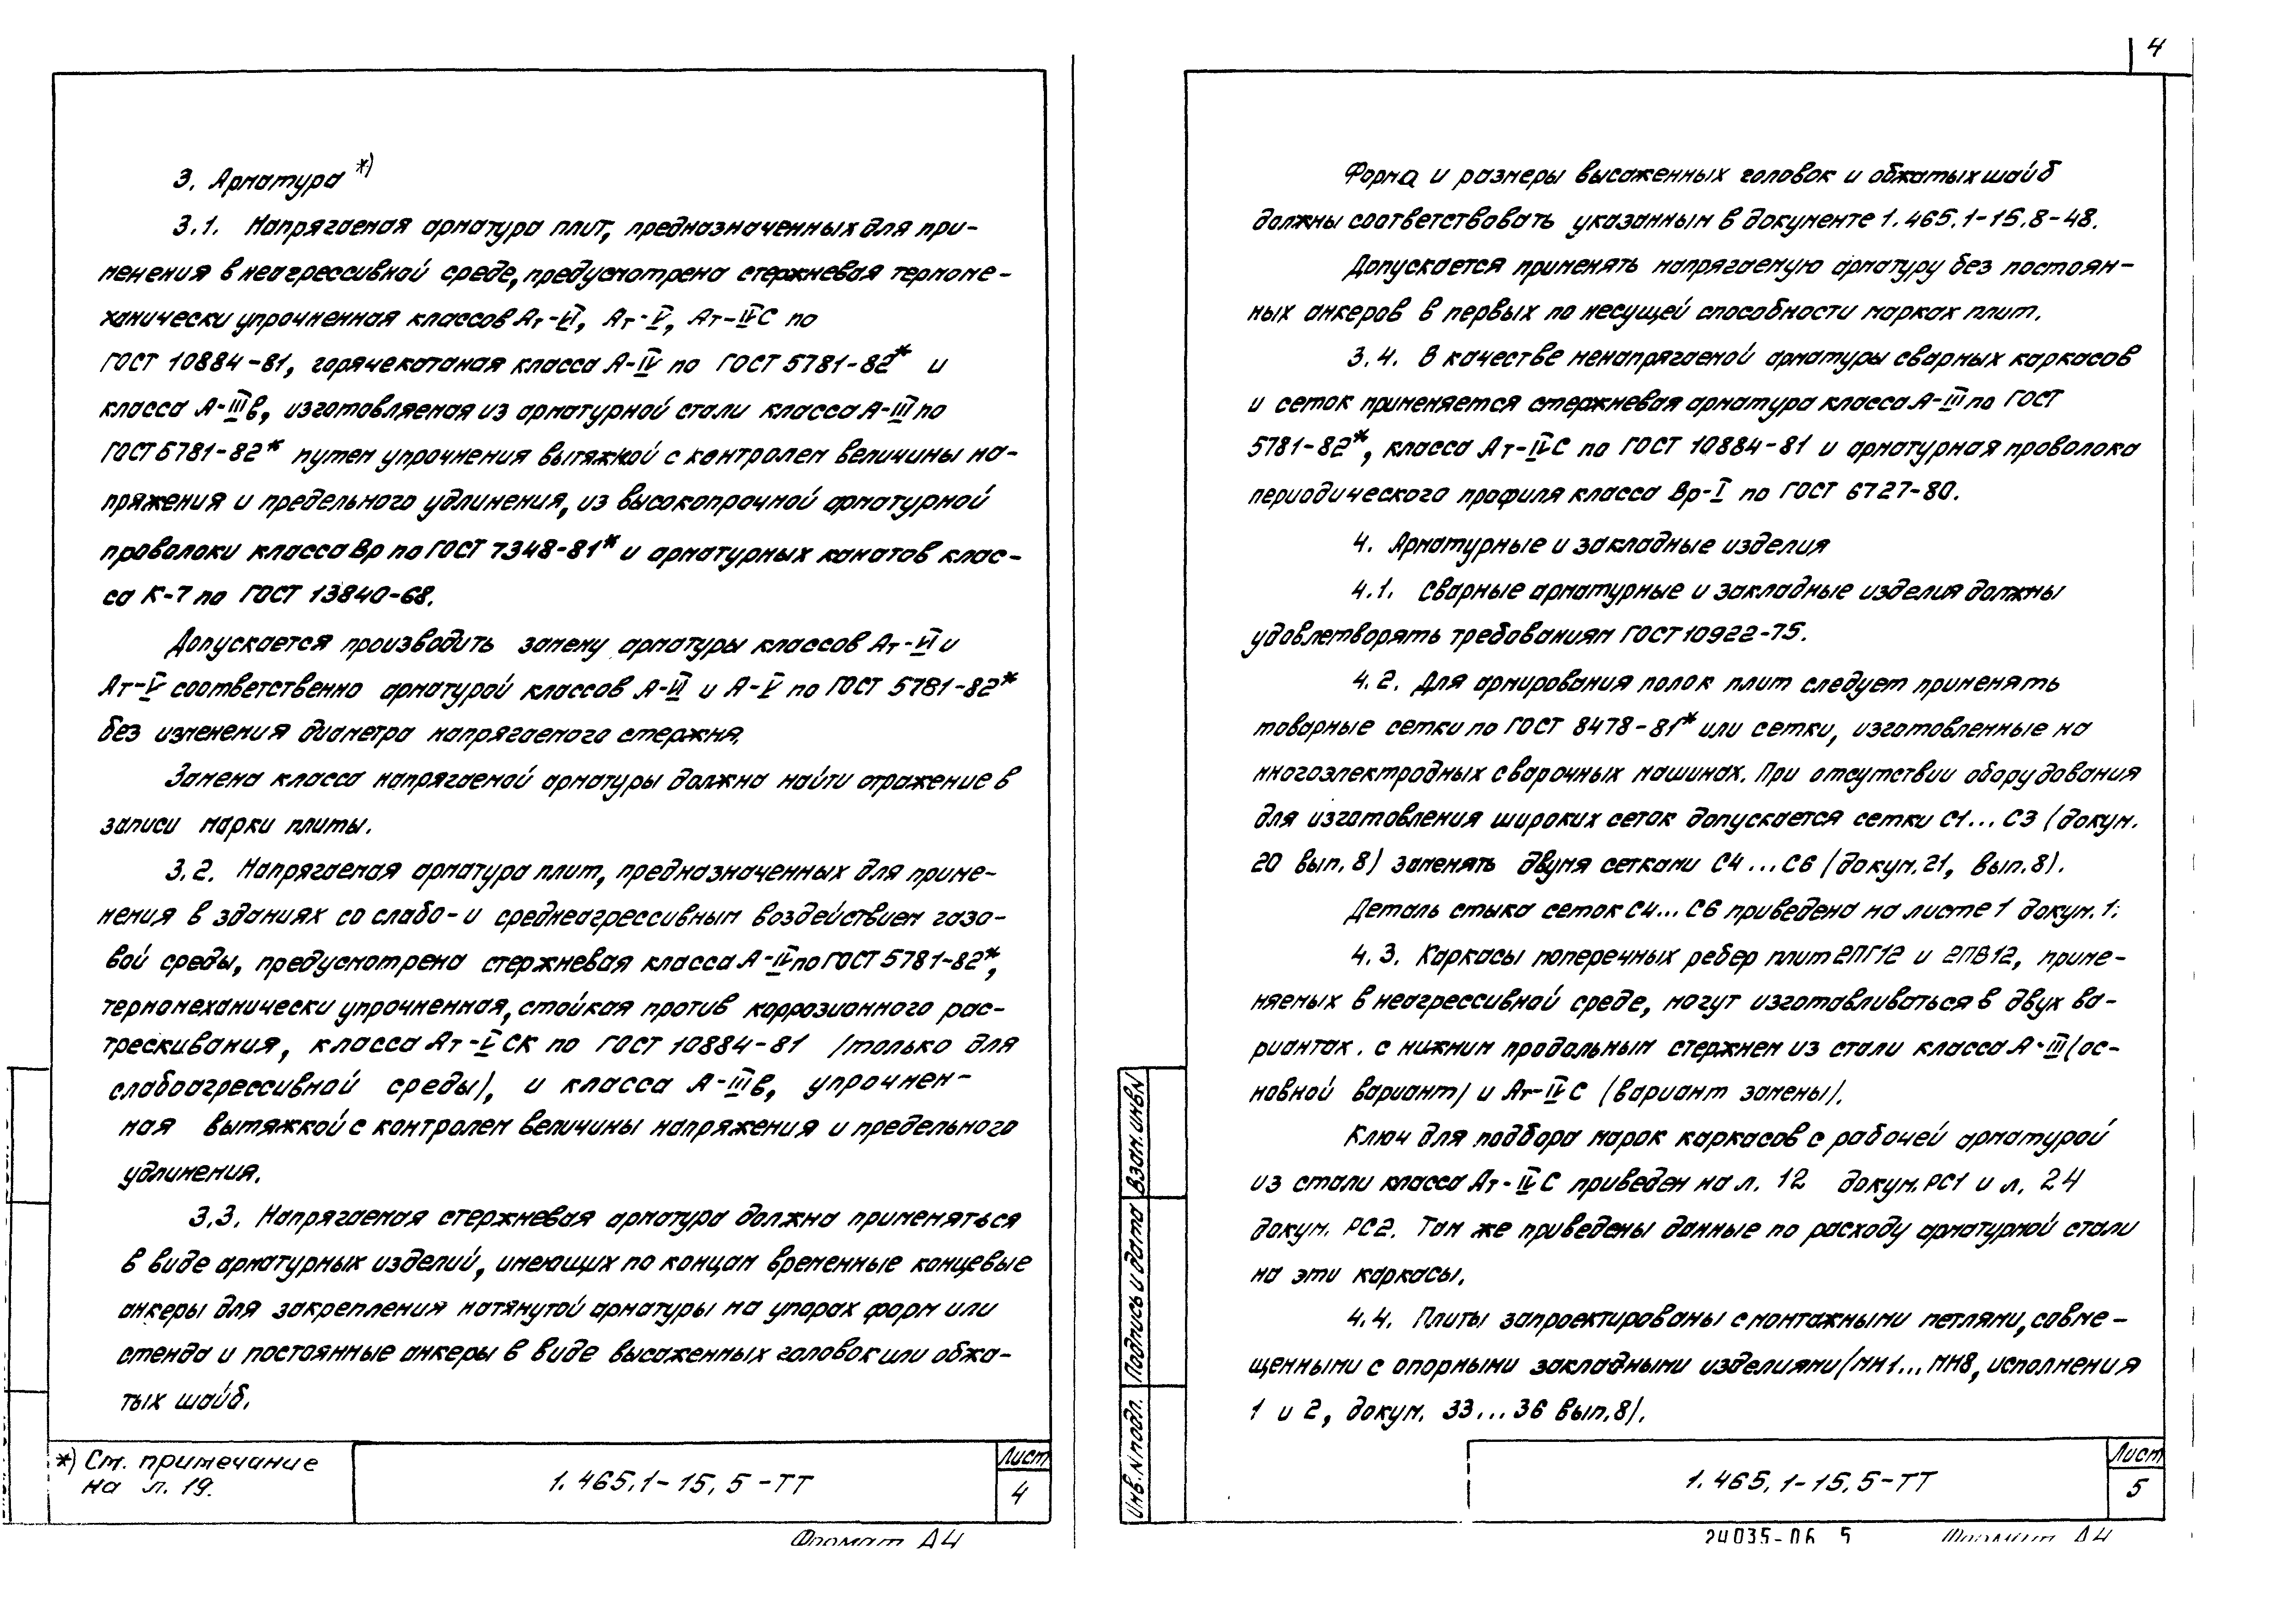 3. Арматура *)
3.1. Напрягаемая арматура плит, предназначенных для при-
менения в неагрессивной среде, предусмотрена стержневая термоме-
ханически упрочненная классов Ат-VI, Ат-V, Ат-IVС по
ГОСТ 10884-81, горячекатаная класса А-IV по ГОСТ 5781-82* и
класса А-IIIв, изготовляемая из арматурной стали класса А-III по
ГОСТ 5781-82* путем упрочнения вытяжкой с контролем величины на-
пряжения и предельного удлинения, из высокопрочной арматурной
проволоки класса Вр по ГОСТ 7348-81* и арматурных канатов клас-
са К-7 по ГОСТ 13840-68.
Допускается производить замену арматуры классов Ат-VI и
Ат-V соответственно арматурой классов А-VI и А-V по ГОСТ 5781-82*
без изменения диаметра напрягаемого стержня.
Замена класса напрягаемой арматуры должна найти отражение в
записи марки плиты.
3.2. Напрягаемая арматура плит, предназначенных для приме-
нения в зданиях со слабо- и среднеагрессивным воздействием газо-
вой среды, предусмотрена стержневая класса А-IV по ГОСТ 5781-82*,
термомеханически упрочненная, стойкая против коррозионного рас-
трескивания, класса Ат-V СК по ГОСТ 10884-81 /только для
слабоагрессивной среды/, и класса А-IIIв, упрочнен-
ная вытяжкой с контролем величины напряжения и предельного
удлинения.
3.3. Напрягаемая стержневая арматура должна применяться
в виде арматурных изделий, имеющих по концам временные концевые
анкеры для закрепления натянутой арматуры на упорах форм или
стенда и постоянные анкеры в виде высаженных головок или обжа-
тых шайб.
*) См. примечание
на л. 19.
1.465.1-15.5-ТТ
Лист
4
Формат А4
4
Форма и размеры высаженных головок и обжатых шайб
должны соответствовать указанным в документе 1.465.1-15.8-48.
Допускается применять напрягаемую арматуру без постоян-
ных анкеров в первых по несущей способности марках плит.
3.4. В качестве ненапрягаемой арматуры сварных каркасов
и сеток применяется стержневая арматура класса А-III по ГОСТ
5781-82*, класса Ат-IVС по ГОСТ 10884-81 и арматурная проволока
периодического профиля класса Вр-I по ГОСТ 6727-80.
4. Арматурные и закладные изделия
4.1. Сварные арматурные и закладные изделия должны
удовлетворять требованиям ГОСТ 10922-75.
4.2. Для армирования полок плит следует применять
товарные сетки по ГОСТ 8478-81* или сетки, изготовленные на
многоэлектродных сварочных машинах. При отсутствии оборудования
для изготовления широких сеток допускается сетки С1...С3 (докум.
20 вып. 8) заменять двумя сетками С4...С6 (докум. 21, вып. 8).
Деталь стыка сеток С4...С6 приведена на листе 1 докум. 1.
4.3. Каркасы поперечных ребер плит 2ПГ12 и 2ПВ12, приме-
няемых в неагрессивной среде, могут изготавливаться в двух ва-
риантах. с нижним продольным стержнем из стали класса А-III (ос-
новной вариант) и Ат-IVС (вариант замены).
Ключ для подбора марок каркасов с рабочей арматурой
из стали класса Ат-IVС приведен на л. 12 докум. РС1 и л. 24
докум. РС2. Там же приведены данные по расходу арматурной стали
на эти каркасы.
4.4. Плиты запроектированы с монтажными петлями, совме-
щенными с опорными закладными изделиями (МН1...МН8, исполнения
1 и 2, докум. 33...36 вып. 8).
Взам. инв. N
Подпись и дата
Инв. N подл.
1.465.1-15.5-ТТ
Лист
5
24035-06 5
Формат А4